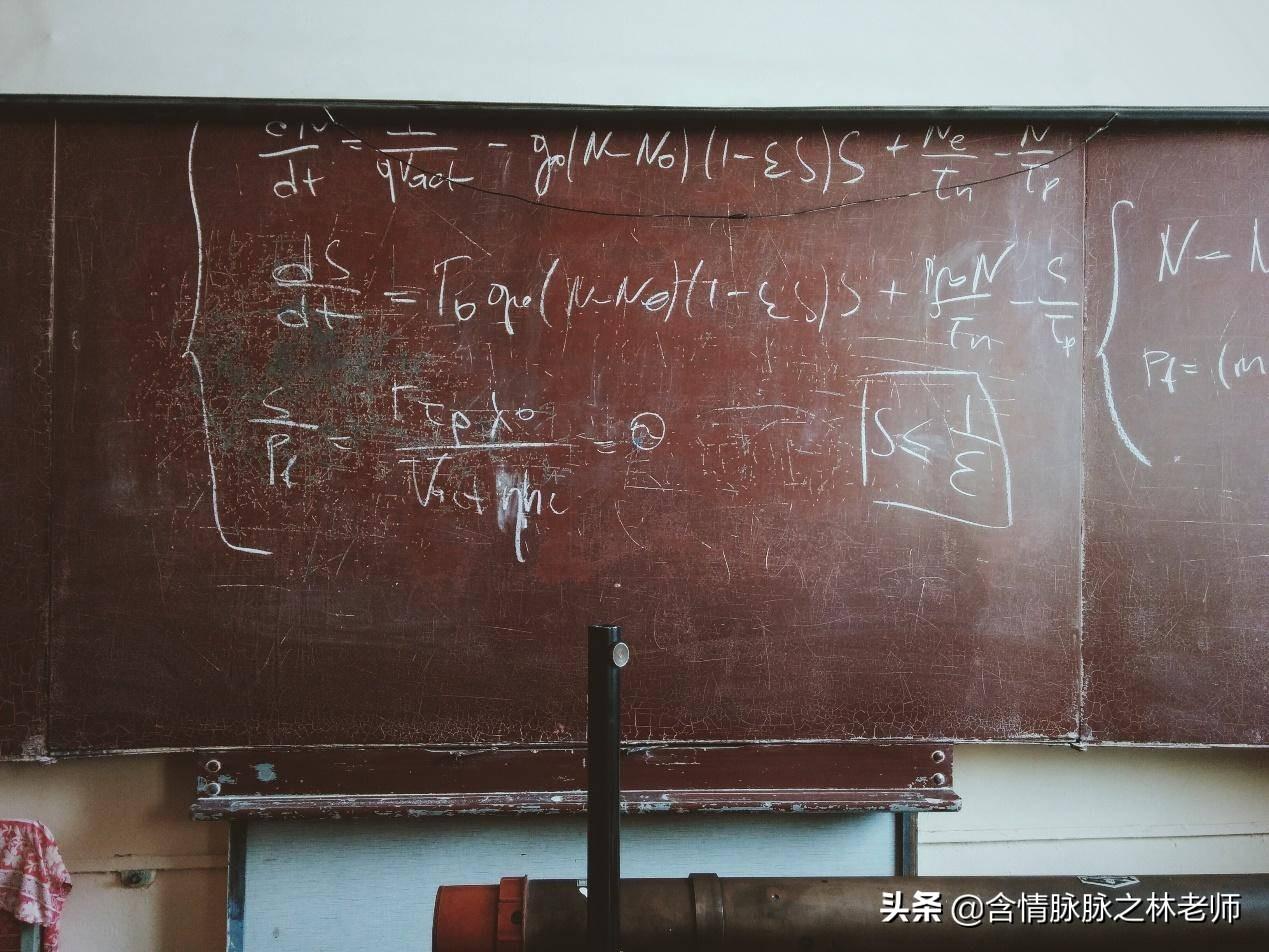 dN/dt = I/qVact - g0(N-N0)(1-εS)S + Ne/τn - N/τp
dS/dt = Γ0 g0(N-N0)(1-εS)S + N/τn - S/τp
S/Pf = Γτpλ0/Vact ηhc = ϑ
S ≤ 1/ε
N - N
Pf = (m
头条 @含情脉脉之林老师